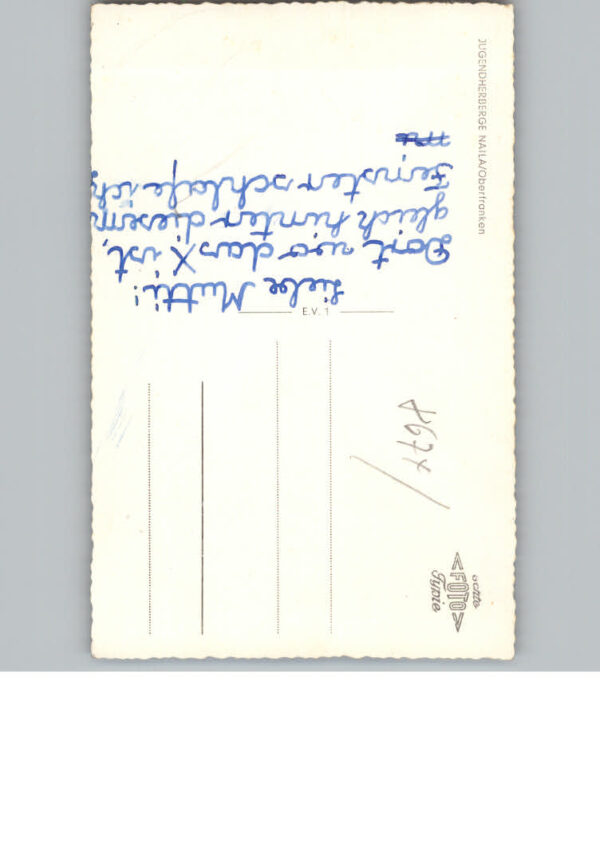 JUGENDHERBERGE NAILA/Oberfranken
Liebe Mutti!
Dort, wo das X ist,
gleich hinter diesem
Fenster schlafe ich
E.V. 1
echte
<FOTO>
Typie